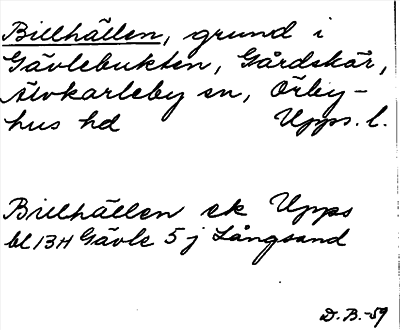 Billhällen, grund i
Gävlebukten, Gårdskär,
Älvkarleby sn, Örby-
hus hd Upps. l.
Billhällen ek Upps
bl 13H Gävle 5 j Långsand
D. B. -59